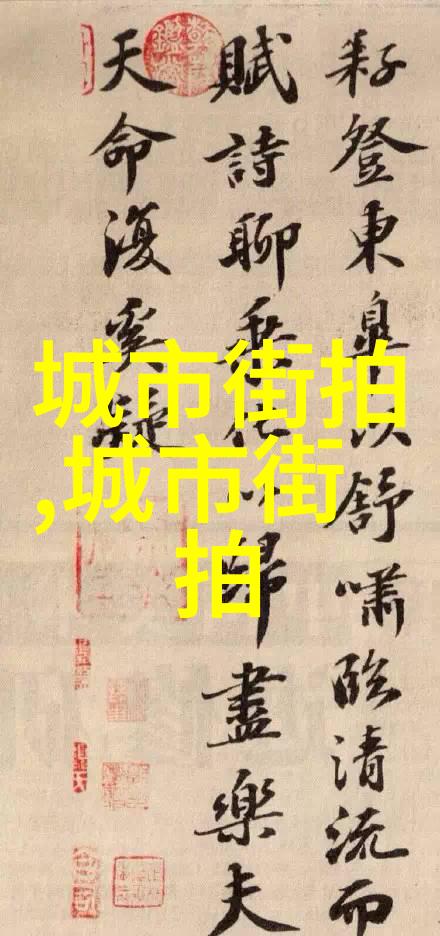 耔登東皋以舒嘯臨清流而
賦詩聊乘化以歸盡樂夫
天命復奚疑
城市街拍
,城市街
拍